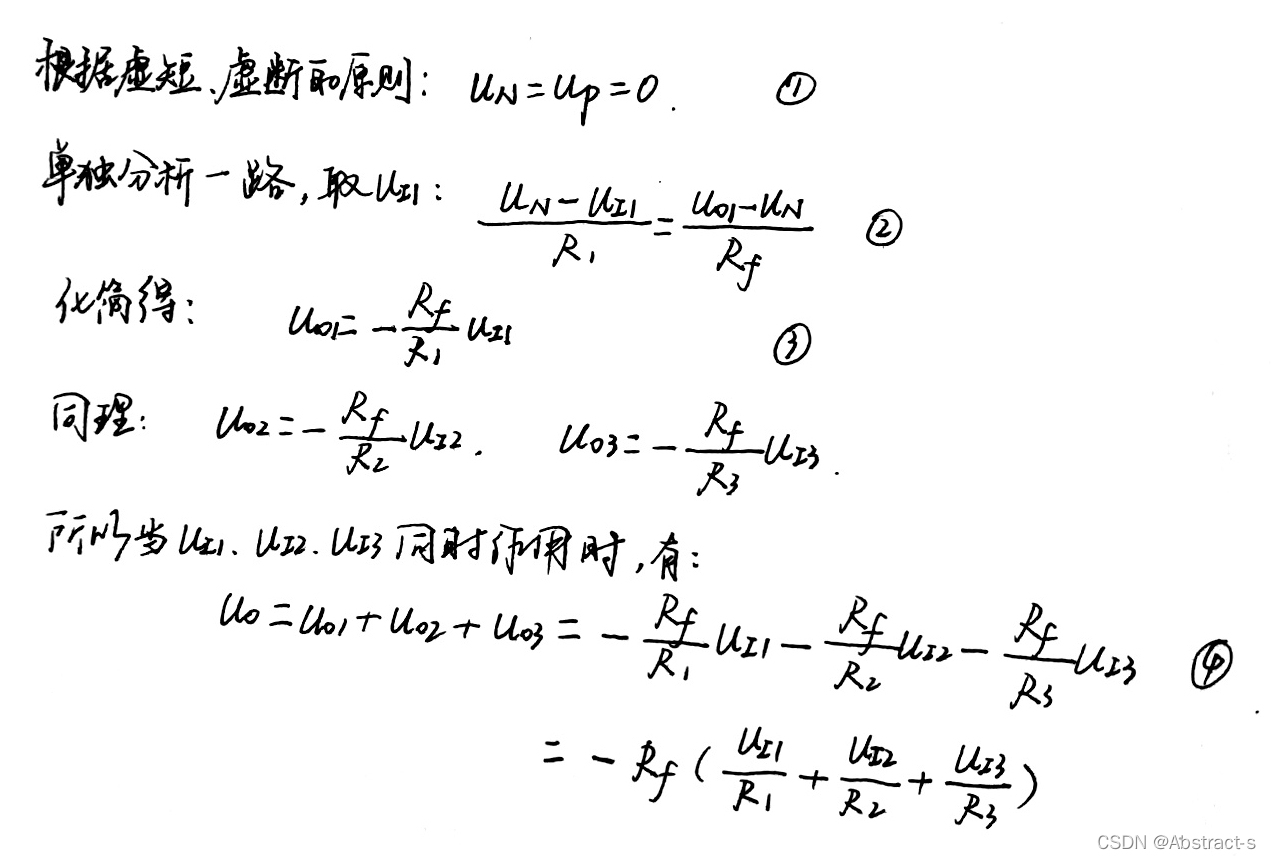 根据虚短、虚断的原则: u_N = u_P = 0. ①
单独分析一路, 取u_I1: (u_N - u_I1)/R_1 = (u_O1 - u_N)/R_f ②
化简得: u_O1 = -R_f/R_1 u_I1 ③
同理: u_O2 = -R_f/R_2 u_I2. u_O3 = -R_f/R_3 u_I3.
所以当u_I1、u_I2、u_I3同时作用时, 有:
u_O = u_O1 + u_O2 + u_O3 = -R_f/R_1 u_I1 - R_f/R_2 u_I2 - R_f/R_3 u_I3 ④
= -R_f (u_I1/R_1 + u_I2/R_2 + u_I3/R_3)
CSDN @Abstract-s